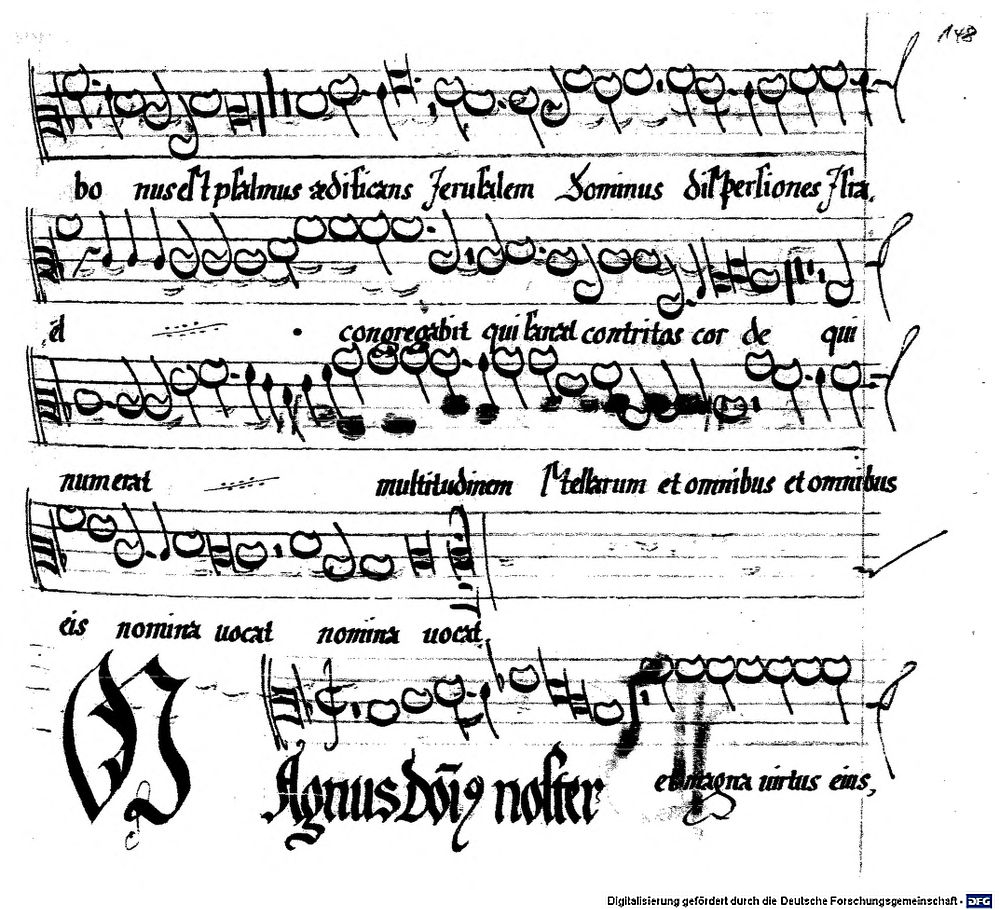 148
bo nus est psalmus ædificans Jerusalem Dominus dispersiones Isra,
el congregabit qui sanat contritos cor de qui
numerat multitudinem stellarum et omnibus et omnibus
eis nomina uocat nomina uocat,
M Agnus dōi9 noster et magna uirtus eius,
Digitalisierung gefördert durch die Deutsche Forschungsgemeinschaft - DFG